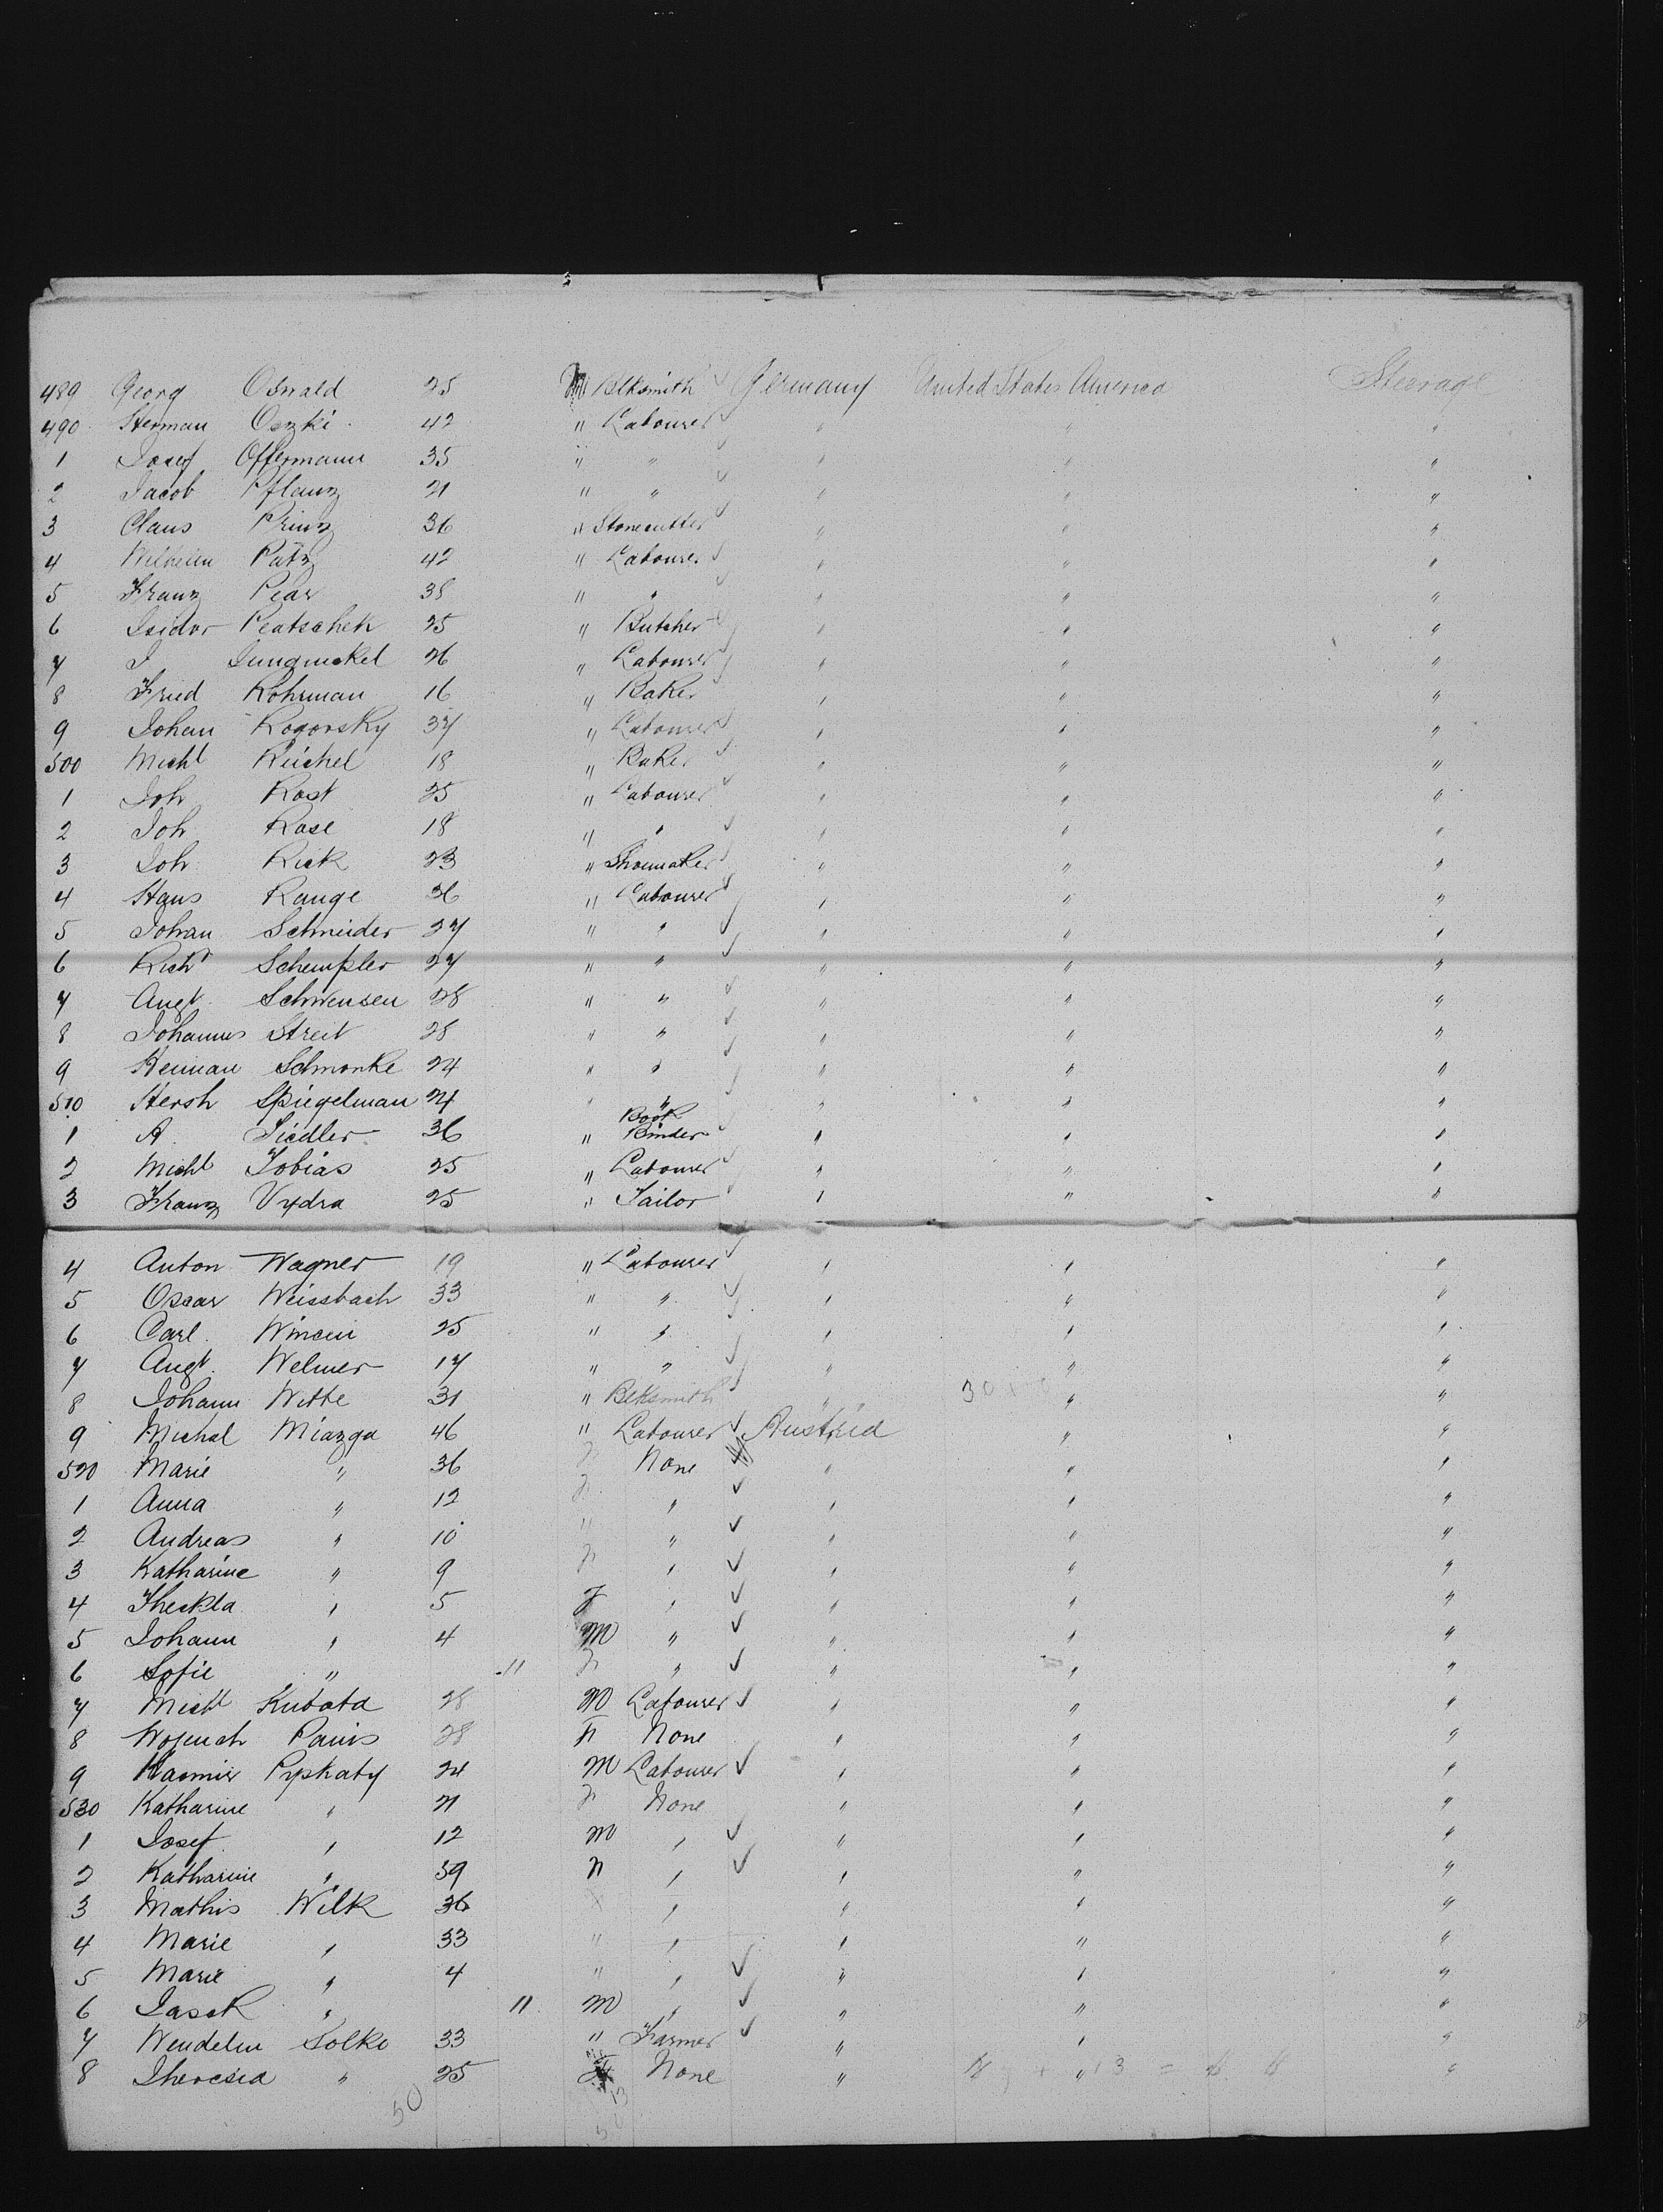 489 Georg Osnald 25 M Blksmith ✓ Germany United States America Steerage
490 Herman Oczki 42 " Labourer ✓ " " "
1 Josef Offermann 35 " " ✓ " " "
2 Jacob Pflanz 21 " " ✓ " " "
3 Claus Prinz 36 " Stonecutter ✓ " " "
4 Wilhelm Patz 42 " Labourer ✓ " " "
5 Franz Pear 38 " " ✓ " " "
6 Isidor Peatschek 25 " Butcher ✓ " " "
7 J Jungnickel 26 " Labourer ✓ " " "
8 Fried Rohrman 16 " Baker ✓ " " "
9 Johan Rogorsky 37 " Labourer ✓ " " "
500 Michl Reichel 18 " Baker ✓ " " "
1 Joh Rost 25 " Labourer ✓ " " "
2 Joh Rose 18 " " ✓ " " "
3 Joh Rick 23 " Shoemaker ✓ " " "
4 Hans Range 36 " Labourer ✓ " " "
5 Johan Schneider 27 " " ✓ " " "
6 Richd Schempler 27 " " ✓ " " "
7 Augt Schwensen 28 " " ✓ " " "
8 Johannes Streit 28 " " ✓ " " "
9 Heiman Schmonke 24 " " ✓ " " "
510 Hersh Spiegelman 24 " " ✓ " " "
1 A. Siedler 36 " Book Binder ✓ " " "
2 Michl Tobias 25 " Labourer ✓ " " "
3 Franz Vydra 25 " Tailor ✓ " " "
4 Anton Wagner 19 " Labourer ✓ " " "
5 Oscar Weissbach 33 " " ✓ " " "
6 Carl 25 " " ✓ " " "
7 Augt. Welmer 17 " " ✓ " " "
8 Johann Witte 31 " Blksmith ✓ " 30 " "
9 Michal Miazga 46 " Labourer ✓ Austria " "
520 Marie " 36 F None ✓ " " "
1 Anna " 12 F " ✓ " " "
2 Andreas " 10 " " ✓ " " "
3 Katharine " 9 F " ✓ " " "
4 Theckla " 5 F " ✓ " " "
5 Johann " 4 M " ✓ " " "
6 Sofie " 11 F " ✓ " " "
7 Michl Kubata 28 M Labourer ✓ " " "
8 Panis 28 F None " " "
9 Kasmir Pyphaty 24 M Labourer ✓ " " "
530 Katharine " 21 F None " " "
1 Josef " 12 M " ✓ " " "
2 Katharine " 59 F " ✓ " " "
3 Mathis Wilk 36 " " " "
4 Marie " 33 " " " " "
5 Marie " 4 " " ✓ " " "
6 " 11 M " ✓ " " "
7 Wendelin Solko 33 " Farmer ✓ " " "
8 Theresia " 25 F None " " "
50